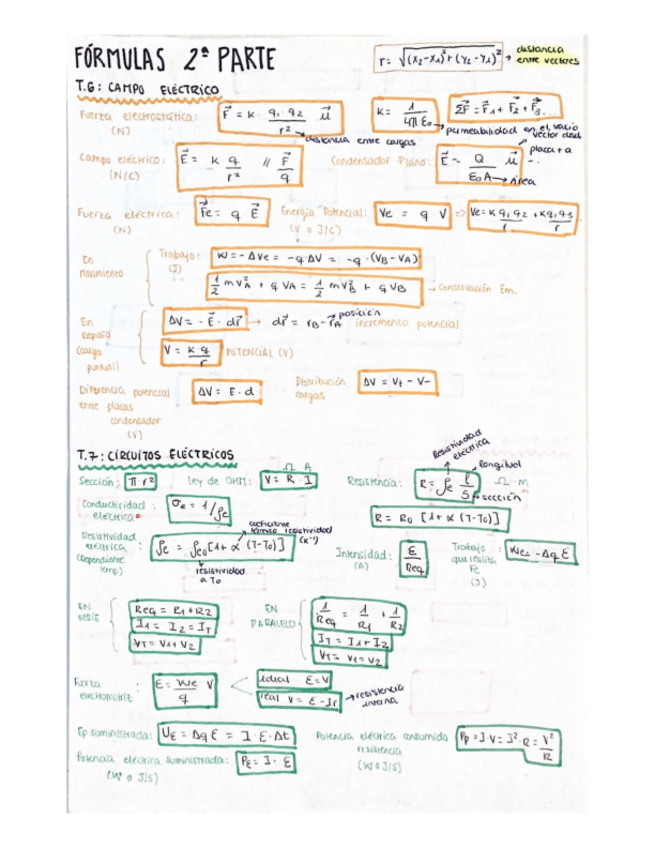 FÓRMULAS 2ª PARTE
r = √(x₂-x₁)²+(y₂-y₁)² → distancia entre vectores
T.6: CAMPO ELÉCTRICO
Fuerza electrostática: F⃗ = k · q₁·q₂ / r² μ⃗
(N)
→ distancia entre cargas
K = 1 / 4π ε₀
ΣF⃗ = F⃗₁ + F⃗₂ + F⃗₃...
→ permeabilidad en el vacío
Campo eléctrico: E⃗ = k q / r² // F⃗ / q
(N/C)
Condensador Plano: E⃗ = Q / ε₀A μ⃗
→ Área
Fuerza eléctrica: F⃗e = q E⃗
(N)
Energía Potencial: Ve = q · V => Ve = k q₁ q₂ / r + k q₁ q₃ / r
(V o J/C)
En movimiento
Trabajo: W = -ΔVe = -q ΔV = -q · (VB - VA)
(J)
½ m V²A + q VA = ½ m V²B + q VB → Conservación Em.
En Reposo
(carga puntual)
ΔV = -E⃗ · dr⃗ → dr⃗ = rB - r⃗A posición incremento potencial
V = k q / r POTENCIAL (V)
Diferencia potencial entre placas condensador
(V)
ΔV = E · d
Distribución cargas
ΔV = V+ - V-
T.7: CIRCUITOS ELÉCTRICOS
Sección: π r²
Ley de OHM: V = R · I
Ω A
Resistencia: R = ρe l / S Ω · m
Resistividad eléctrica
longitud
sección
Conductividad eléctrica: σe = 1/ρe
R = R₀ [1 + α (T-T₀)]
Resistividad eléctrica: ρe = ρe₀ [1 + α (T-T₀)]
(Dependiente temp)
coeficiente térmico resistividad (K⁻¹)
resistividad a T₀
Intensidad: ε / Req
(A)
Trabajo que realiza Fe
(J)
We = Δq ε
EN SERIE
Req = R₁ + R₂
I₁ = I₂ = IT
VT = V₁ + V₂
EN PARALELO
1 / Req = 1 / R₁ + 1 / R₂
IT = I₁ + I₂
VT = V₁ = V₂
Fuerza electromotriz: ε = We / q V
ideal ε = V
real V = ε - Ir → resistencia interna
Ep suministrada: UE = Δq ε = I · ε · Δt
Potencia eléctrica consumida resistencia
(W o J/S)
Pp = I · V = I² · R = V² / R
Potencia eléctrica suministrada: PE = I · ε
(W o J/S)